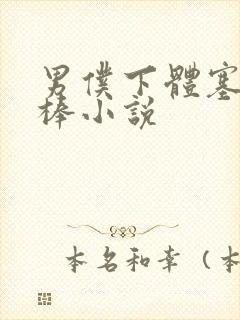 男僕下體塞
棒小說
本名和幸（本